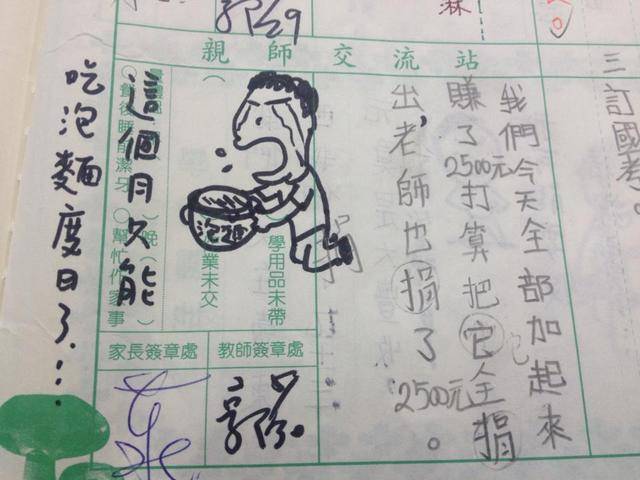 三訂國考。
親師交流站
我們今天全部加起來
賺了2500元打算把它全捐
出,老師也捐了2500元。
學用品未帶
業未交
泡麵
這個月只能
吃泡麵度日了...
餐後睡前潔牙
幫忙作家事
教師簽章處
家長簽章處